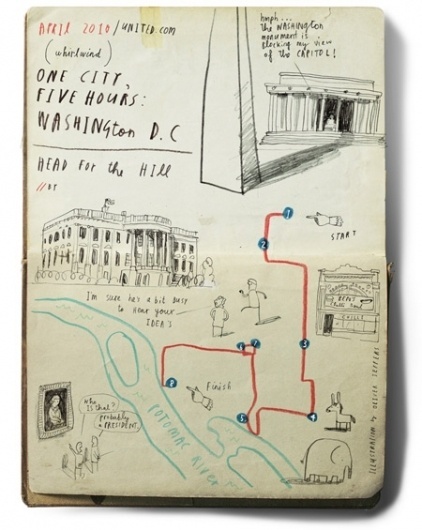 APRIL 2010 / UNITED.COM
(whirlwind)
ONE CITY,
FIVE HOURS:
WASHINGTON D.C
HEAD FOR the HILL
//BY
hmph...
The WASHINGTON
monument is
blocking my view
of the CAPITOL!
1
START
2
I'm sure he's a bit busy
to hear your
IDEAS
BEN'S
CHILI BOWL
3
Finish
8
5
4
POTOMAC RIVER
who
IS that?
probably
a PRESIDENT.
ILLUSTRATION by OLIVER JEFFERS